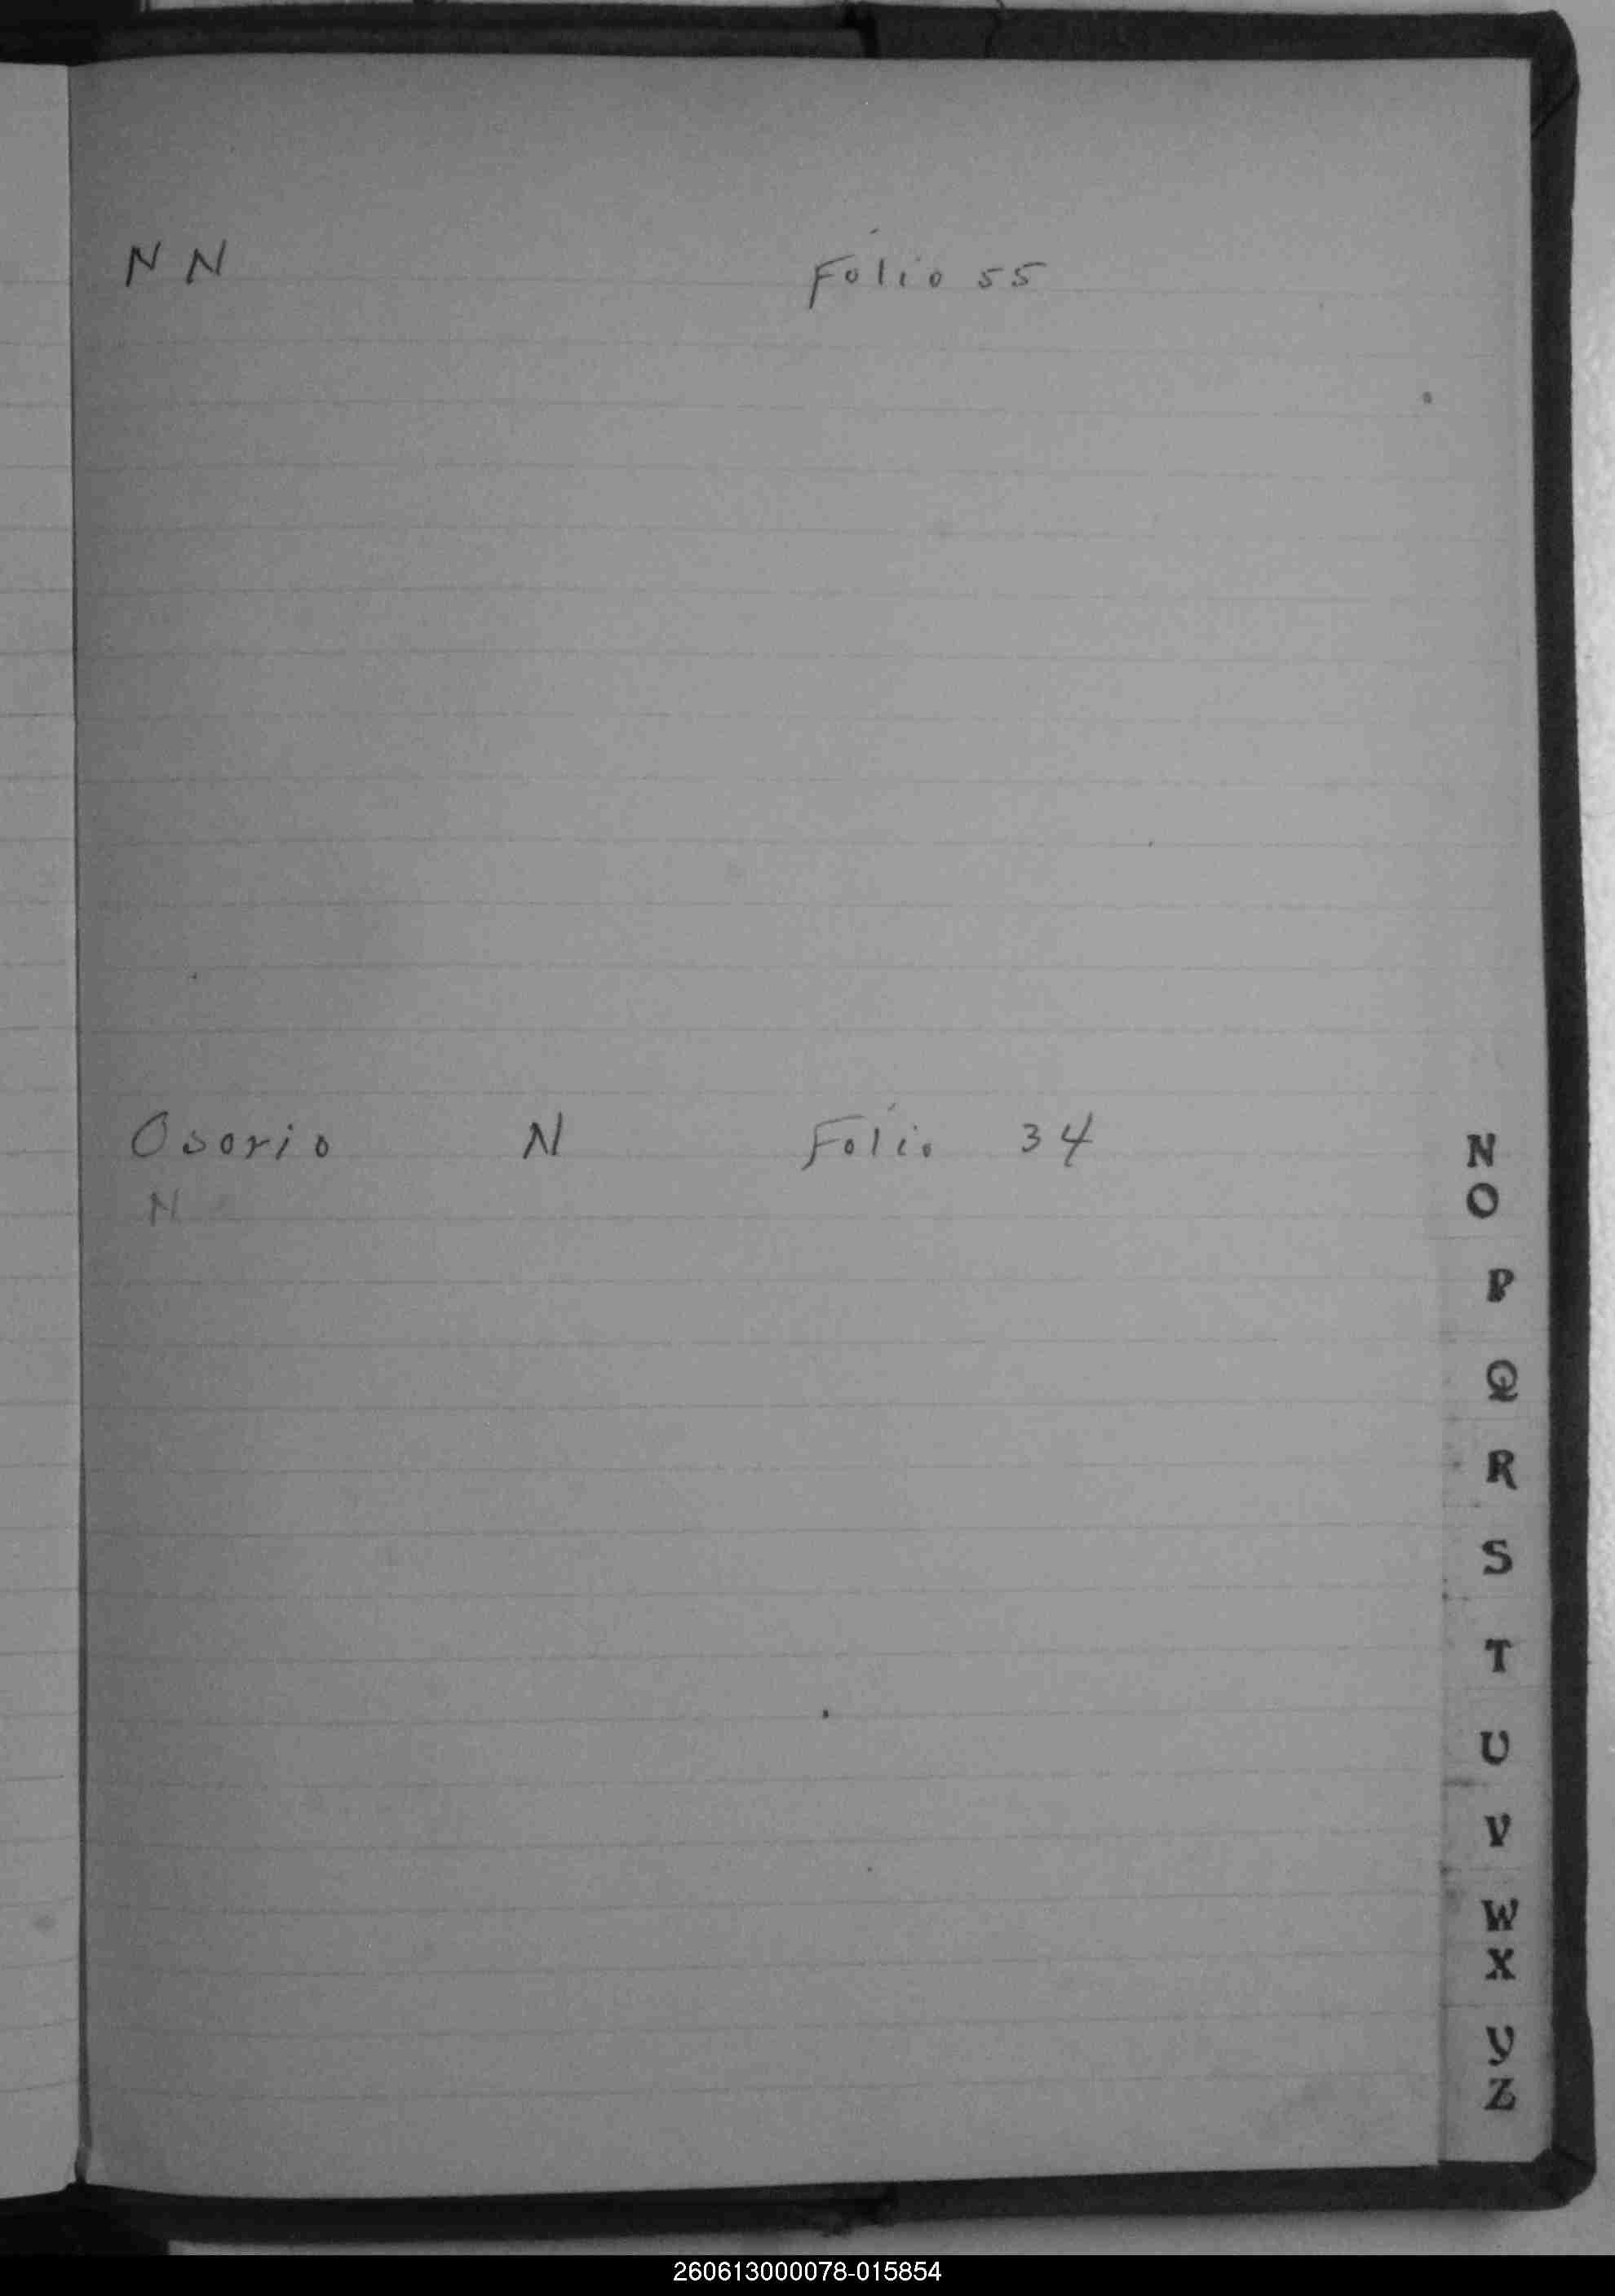 N N Folio 55
Osorio N Folio 34
N
N
O
P
Q
R
S
T
U
V
W
X
Y
Z
260613000078-015854